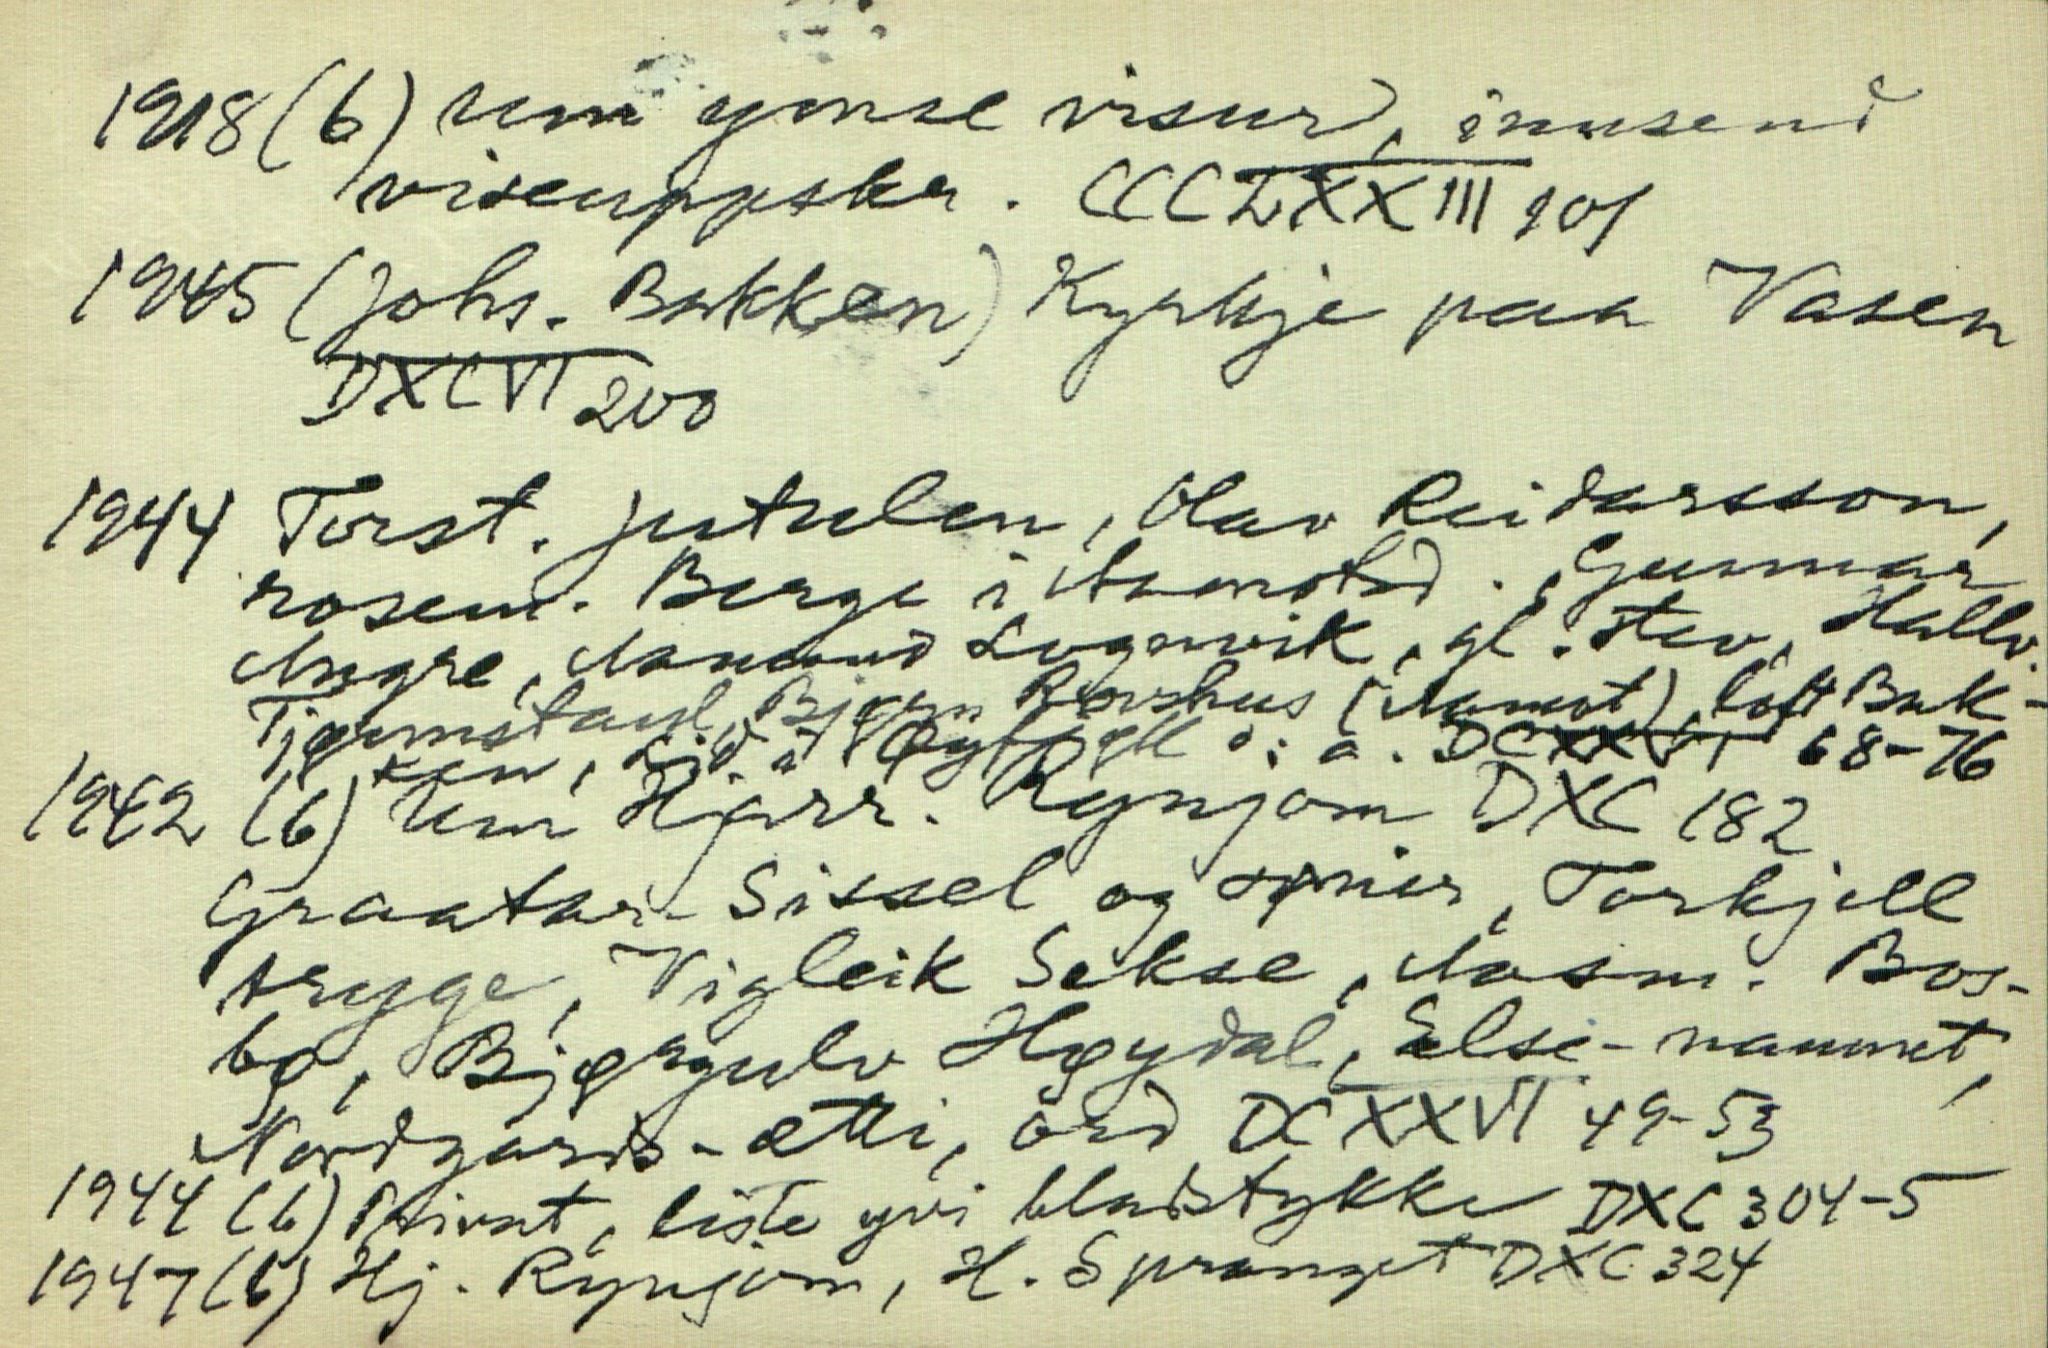 1918 (b) Um ymse visur, innsend
viseuppskr. CCCLXXIII 101
1945 (Johs. Bakken) Kyrkje paa Vasen
DXCVI 200
1944 Torst. Jutulen, Olav Reidarsson,
rosem. Berge i Aamotsd. Gunnar
Angre, Aamund Lognvik, gl. stev, Hallv.
Tjønnstaul, Bjørn Rovshus (Aamot), loft Bak-
ken, Lid i Øyfjell o. a. DCXXVI 68-76
1942 (b) Um Hjarr. Rynjom DXC 182
Graatar-Sissel og Torkjell
trygge, Vigleik Sekse, Aasm. Bos-
bø, Bjørgulv Høydal, Else-namnet,
Nordgards-ætti, ord DCXXVI 49-53
1944 (b) Privat, liste yvi bladstykke DXC 304-5
1947 (b) Hj. Rynjom, H. Spranget DXC 324